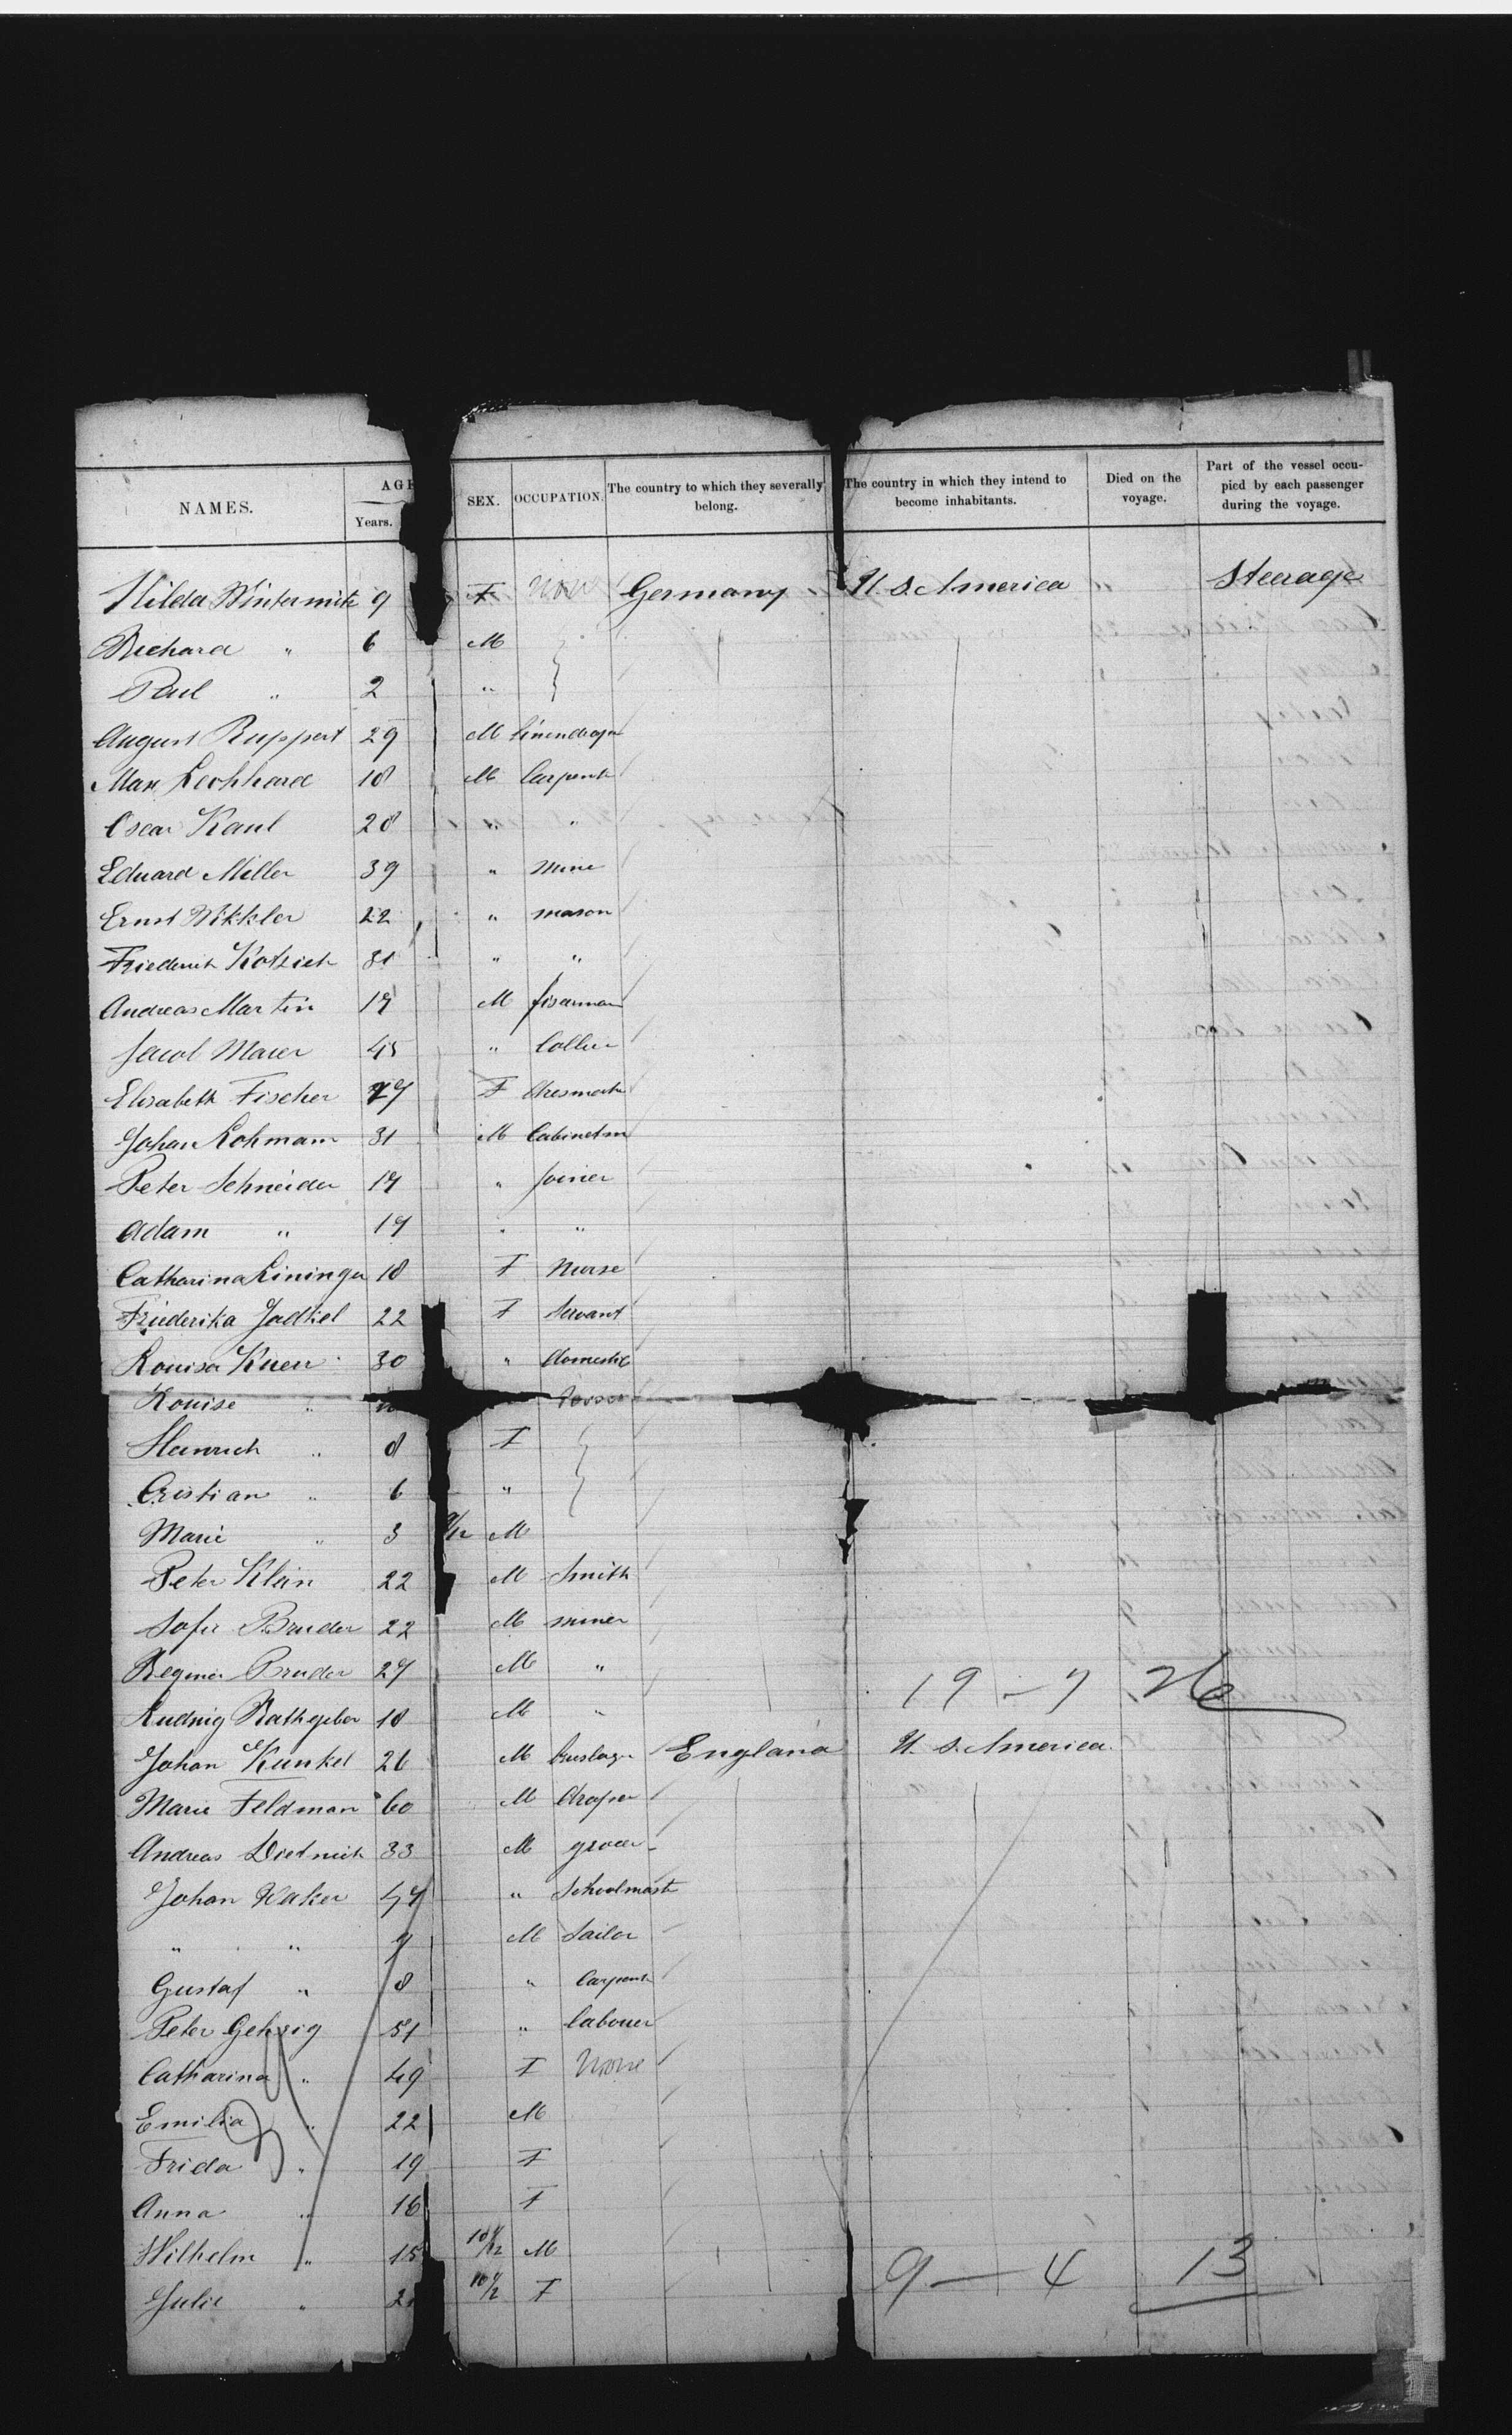 NAMES. AGE SEX. OCCUPATION. The country to which they severally belong. The country in which they intend to become inhabitants. Died on the voyage. Part of the vessel occupied by each passenger during the voyage.
Years.
Hilda Winternitz 9 F None Germany U. S. America Steerage
Richard " 6 M
Paul " 2 "
August Ruppert 29 M
Max 18 M Carpent
Oscar Kaul 28 " "
Eduard Miller 39 " Mine
Ernst Wikkler 22 " mason
Friederich Kotzich 31 " "
Andreas Martin 17 M fiserman
Jacob Maier 45 " Collier
Elisabeth Fischer 27 F dresmak
Johan Lohmann 31 M Cabinetm
Peter Schneider 17 " Joiner
Adam " 17 " "
Catharina Lininger 18 F Nurse
Friederika 22 F Servant
Louisa Kuen 30 " domestic
Louise "
Heinrich " 8 F
Cristian " 6 "
Marie " 3 M
Peter Klein 22 M Smith
Sofie Bruder 22 M miner
Bruder 27 M "
Ludwig Rathgeber 18 M "
19 - 7 26
Johan Kunkel 26 M England U. S. America
Marie Feldman 60 M draper
Andreas Dietrich 33 M grocer
Johan 47 " Schoolmast
" " 9 M Tailor
Gustaf " 8 " Carpent
Peter Gehrig 51 " labouer
Catharina " 49 F None
Emilia " 22 M
Frida " 19 F
Anna " 16 F
Wilhelm " 15 M
Julie " F
9 - 4 13